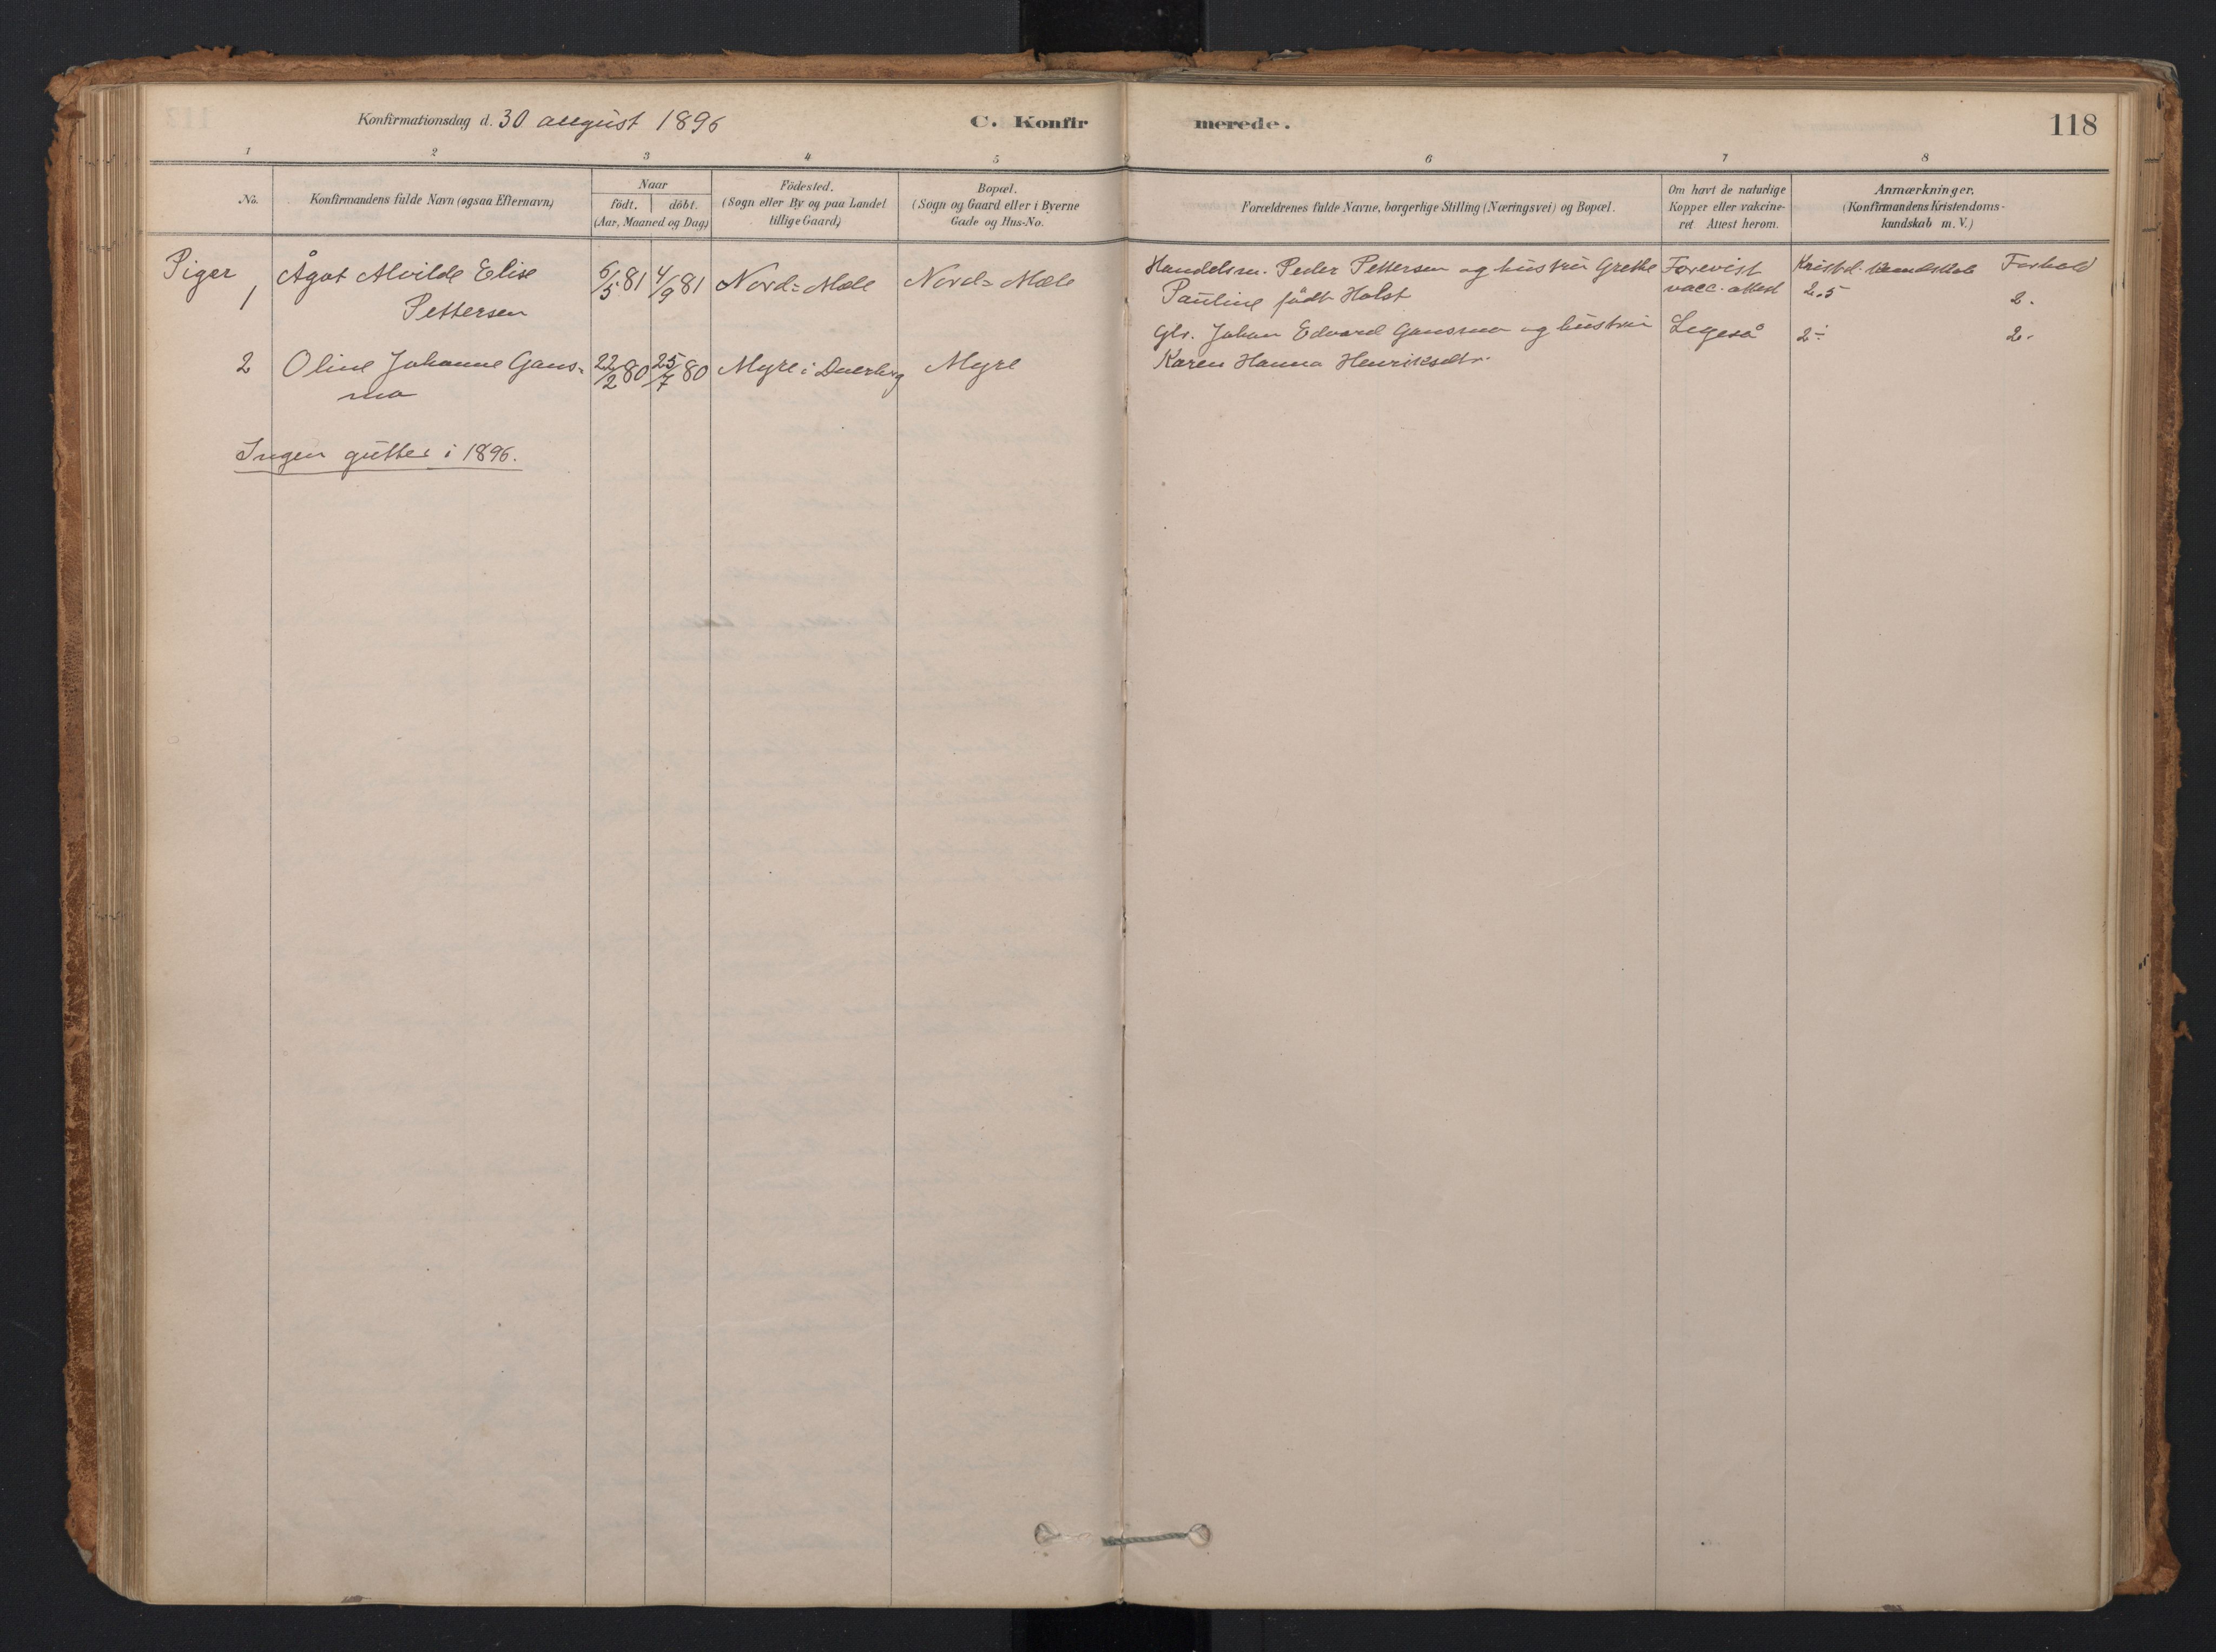 Konfirmationsdag d. 30 august 1896
C. Konfirmerede.
118
1 2 3 4 5 6 7 8
No.
Konfirmandens fulde Navn (ogsaa Efternavn)
Naar
födt. döbt.
(Aar, Maaned og Dag)
Födested.
(Sogn eller By og paa Landet
tillige Gaard)
Bopæl.
(Sogn og Gaard eller i Byerne
Gade og Hus-No.
Forældrenes fulde Navne, borgerlige Stilling (Næringsvei) og Bopæl.
Om havt de naturlige
Kopper eller vakcine-
ret Attest herom.
Anmærkninger.
(Konfirmandens Kristendoms-
kundskab m. V.)
Piger
1 Ågot Alvilde Elise 6/5 81 4/9 81 Nord-Mele Nord-Mele Handelsm. Peder Pettersen og hustru Grethe Forevist Kristd. kundskab Forhold
Pettersen Pauline född Holst vacc. attest 2.5 2.
Johan Edvard Gansmo og hustru Ligeså 2÷ 2.
2 Oline Johanne Gans- 22/2 80 25/7 80 Myre i Myre Karen Hanna Henriksdtr.
mo
Ingen gutter i 1896.